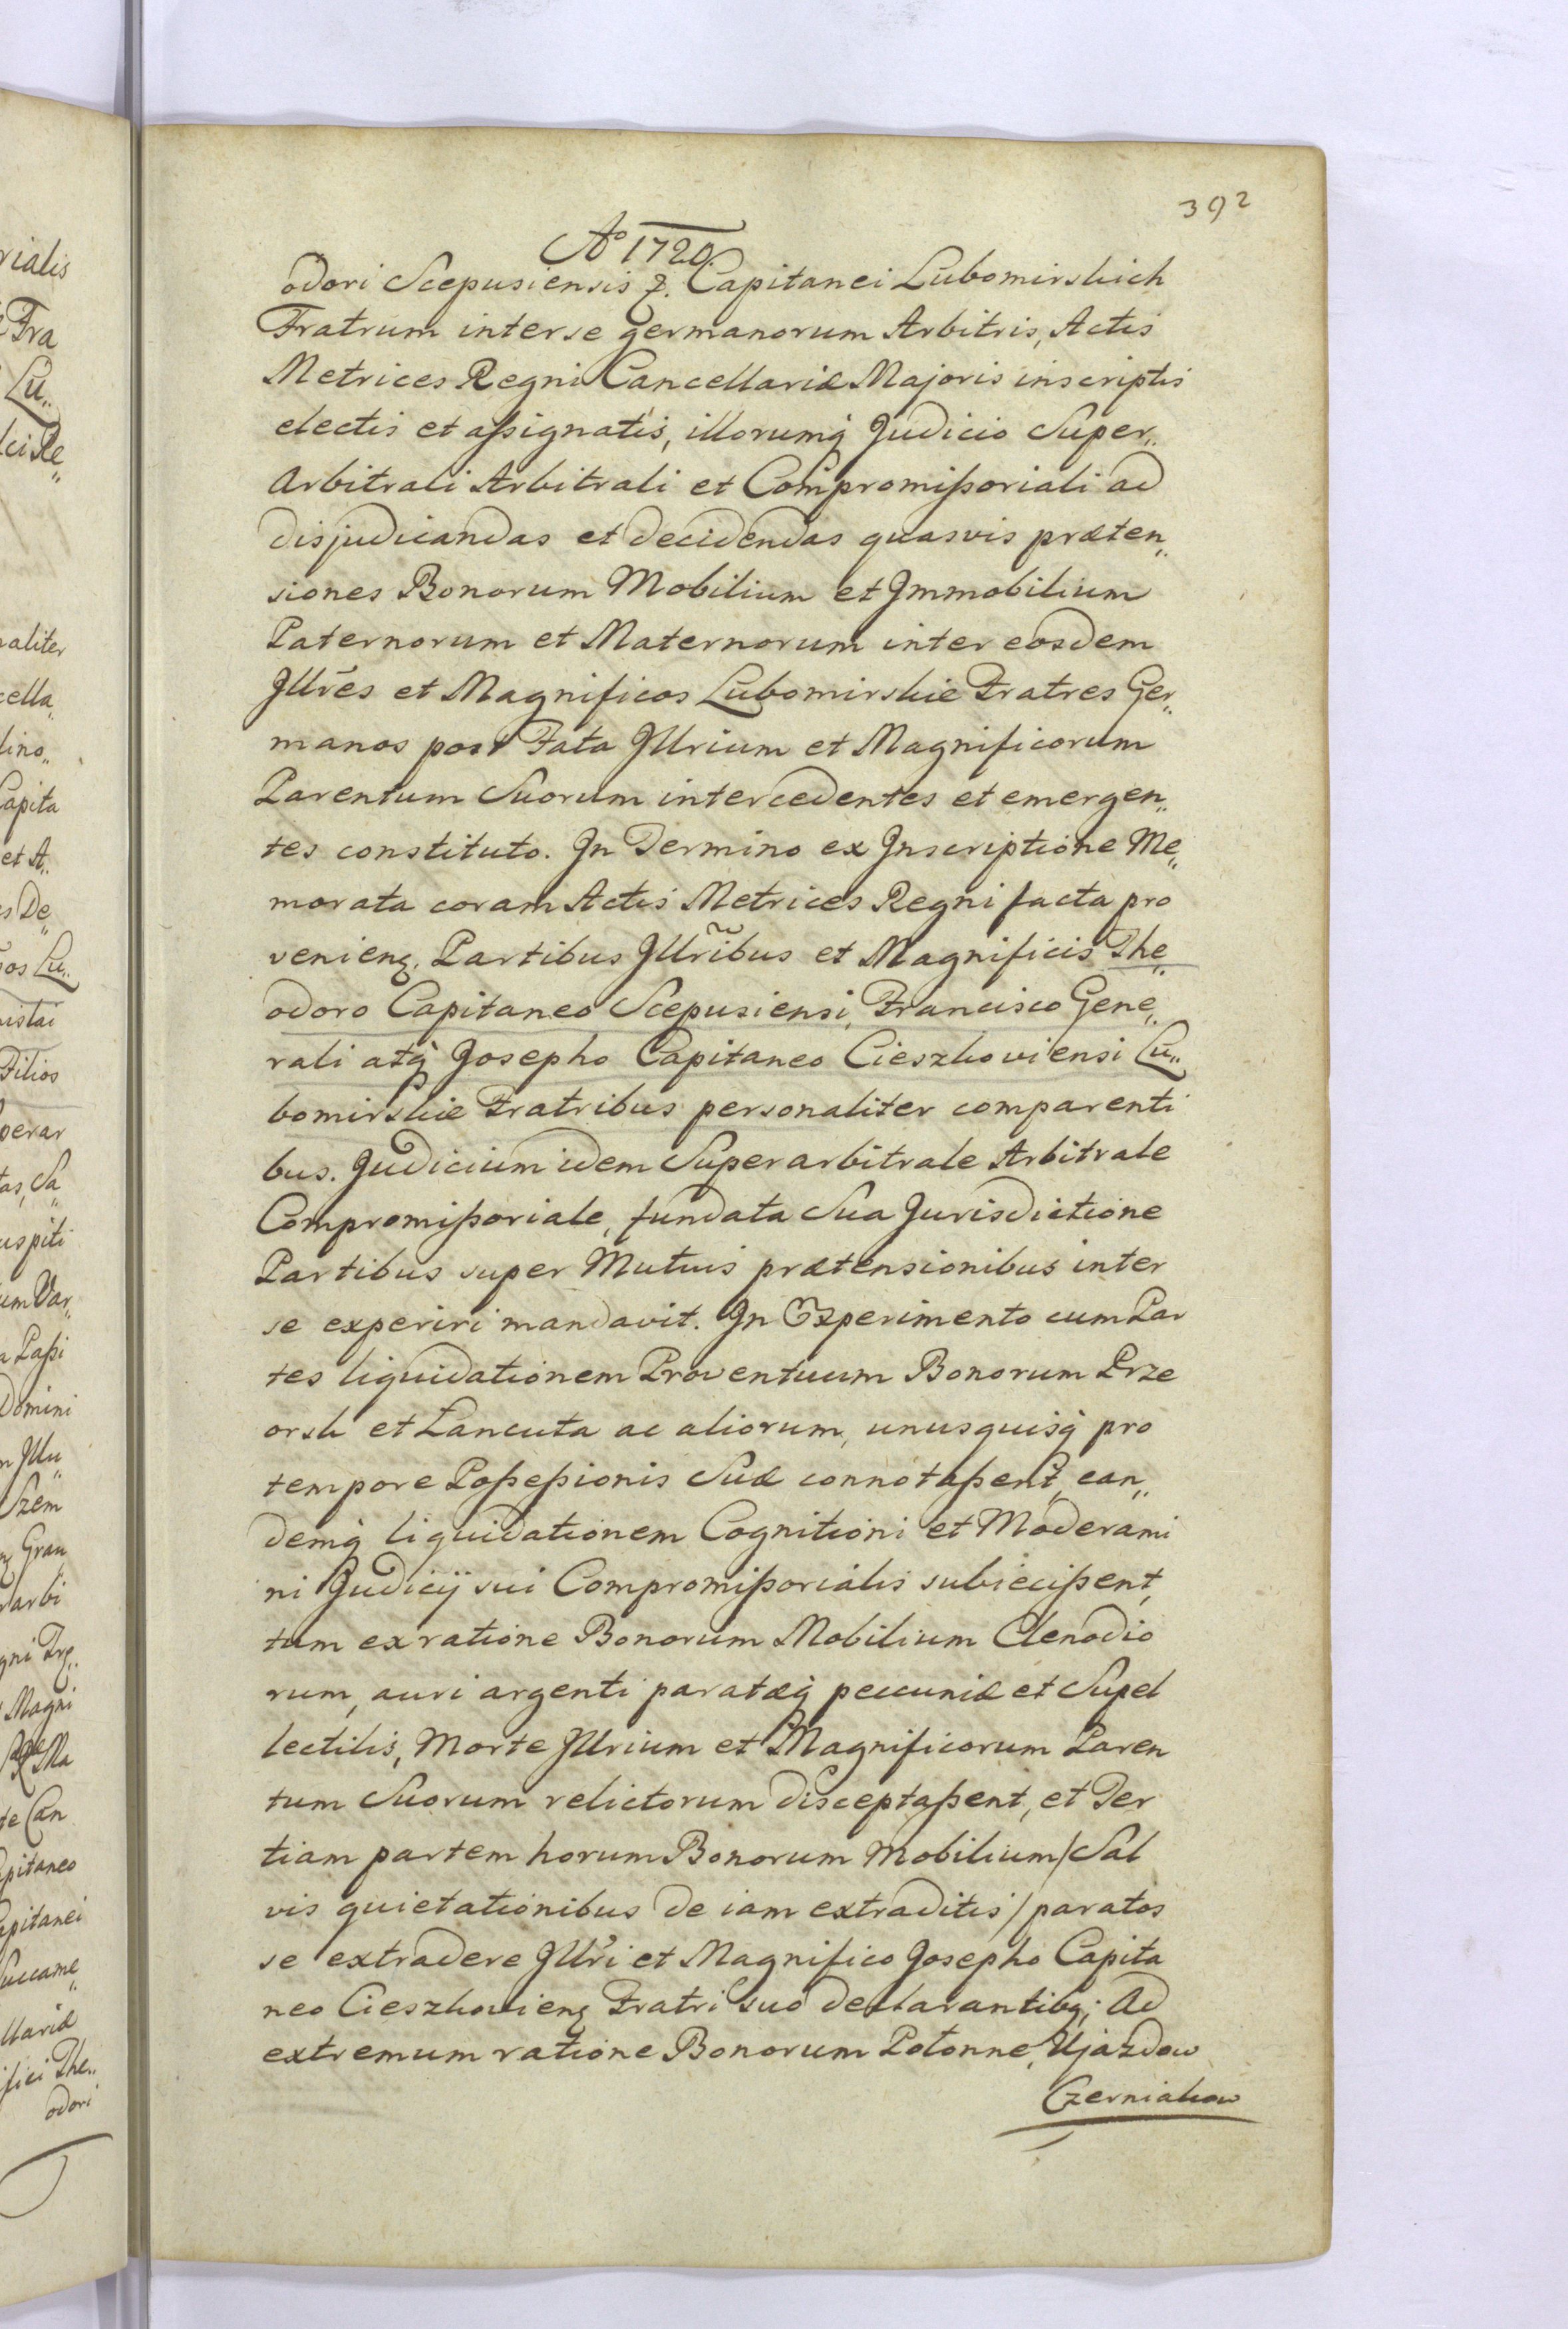 392
Aº 1720.
odori Scepusiensis &. Capitanei Lubomirskich
Fratrum inter se germanorum Arbitris, Actis
Metrices Regni Cancellariæ Majoris inscriptis
electis et aßignatis, illorumq́ Judicio Super„
Arbitrali Arbitrali et Compromißoriali ad
disjudicandas et decidendas quasvis præten„
siones Bonorum Mobilium et Immobilium
Paternorum et Maternorum inter eosdem
Jllr̃es et Magnificos Lubomirskie Fratres Ger„
manos post Fata Jllrium et Magnificorum
Parentum Suorum intercedentes et emergen„
tes constituto. Jn Termino ex Jnscriptione Me„
morata coram Actis Metrices Regni facta pro
venienę. Partibus Jllr̃ibus et Magnificis The„
odoro Capitaneo Scepusiensi, Francisco Gene„
rali atq́ Josepho Capitaneo Cieszkoviensi Lu„
bomirskie Fratribus personaliter comparenti
bus. Judicium idem Superarbitrale Arbitrale
Compromißoriale, fundata Sua Jurisdictione
Partibus super Mutuis prætensionibus inter
se experiri mandavit. Jn Experimento cum Par
tes liquidationem Proventuum Bonorum Prze
orsk et Łancuta ac aliorum, unusquisq́ pro
tempore Poßeßionis Suæ connotaßent, ean„
demq́ liquidationem Cognitioni et Moderami
ni Judicÿ sui Compromißorialis subiecißent,
tum ex ratione Bonorum Mobilium Clenodio
rum, auri argenti paratæq́ peccuniæ et Supel
lectilis, Morte Jllrium et Magnificorum Paren
tum Suorum relictorum disceptaßent, et Ter
tiam partem horum Bonorum Mobilium /Sal
vis quietationibus de iam extraditis/ paratos
se extradere Jllr̃i et Magnifico Josepho Capita
neo Cieszkovienę Fratri suo declarantibę; Ad
extremum ratione Bonorum Połonne, Ujazdow
Czerniakow